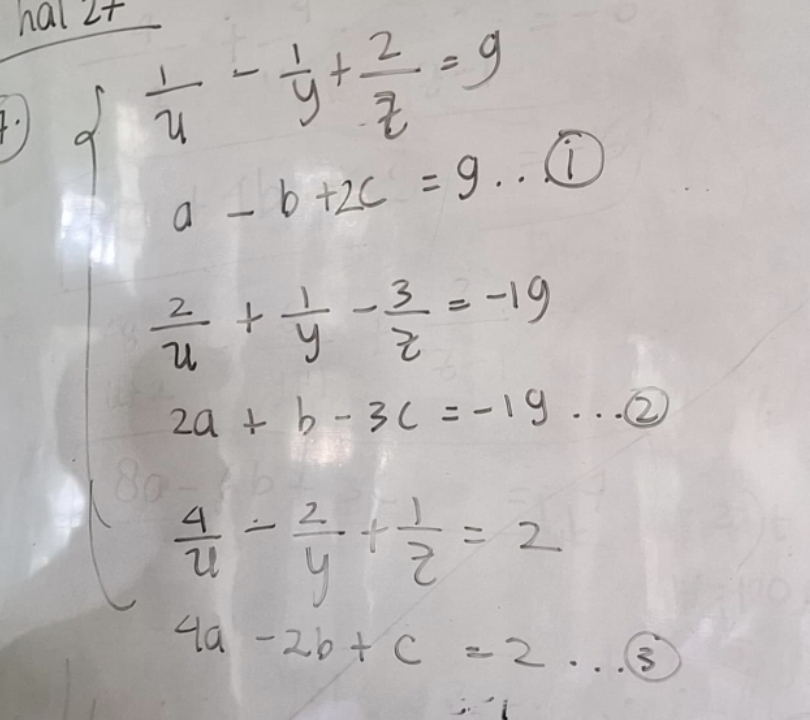 hal 27
7.
1/u - 1/y + 2/z = 9
a - b + 2c = 9 ... ①
2/u + 1/y - 3/z = -19
2a + b - 3c = -19 ... ②
4/u - 2/y + 1/z = 2
4a - 2b + c = 2 ... ③